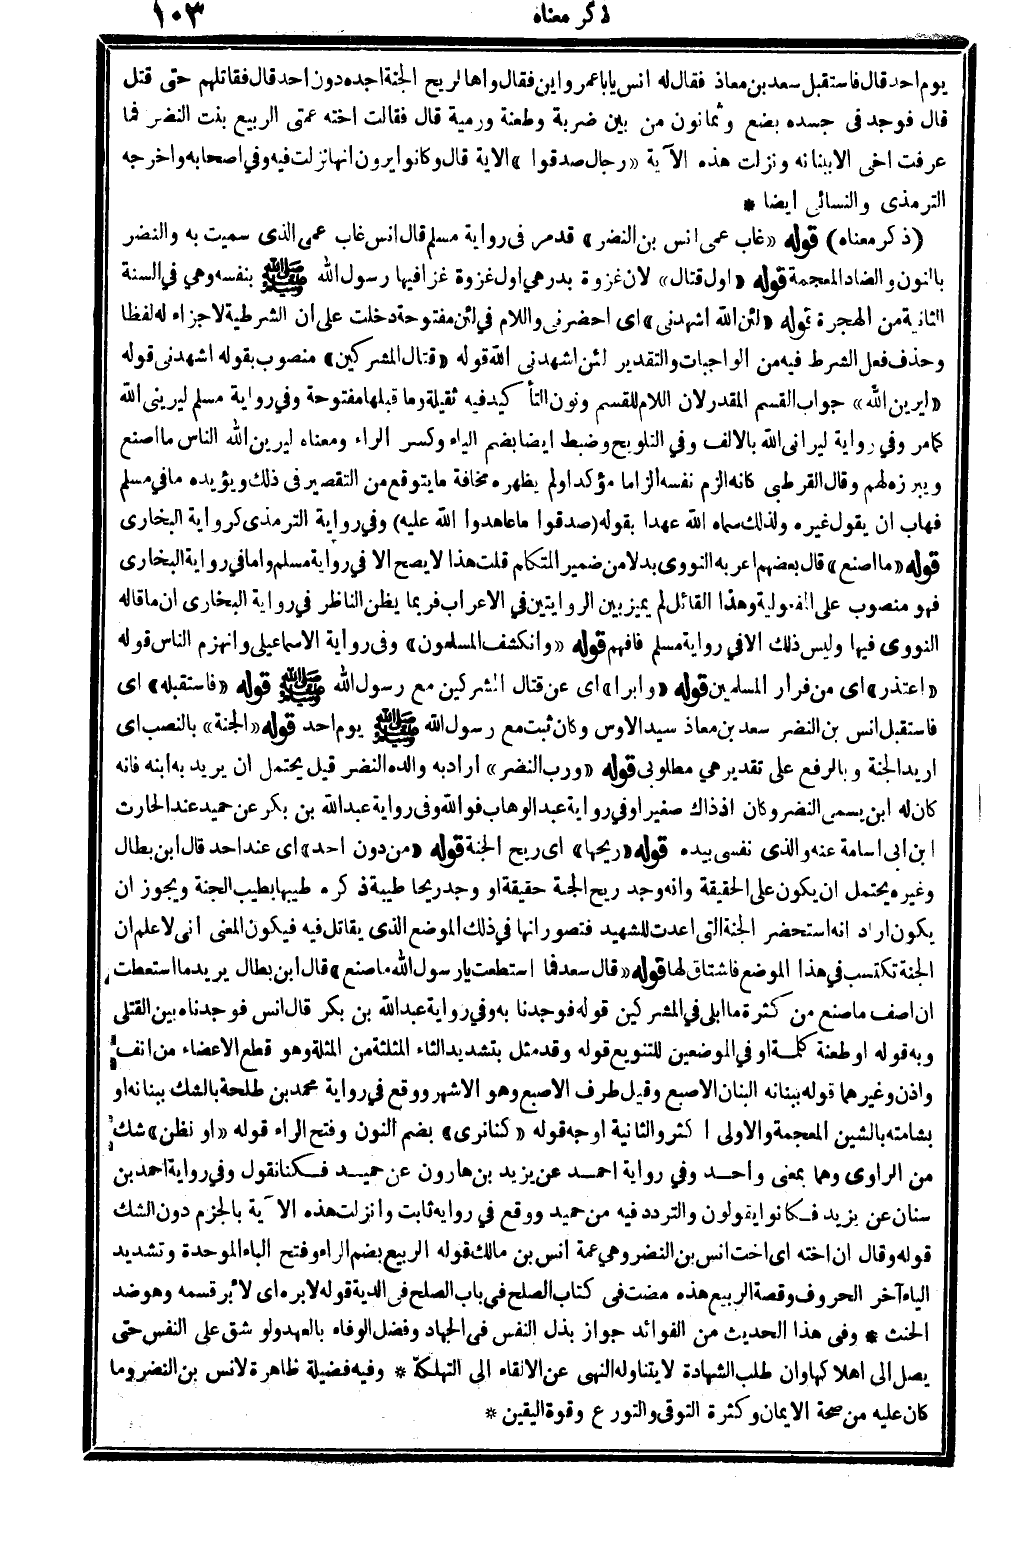 ذكر معناه ١٠٣
يوم احد قال فاستقبل سعد بن معاذ فقال له انس يابا عمرو اين فقال واها لريح الجنة اجده دون احد قال فقاتلهم حتى قتل
قال فوجد فى جسده بضع وثمانون من بين ضربة وطعنة ورمية قال فقالت اخته عمتى الربيع بنت النضر فما
عرفت اخى الا ببنانه ونزلت هذه الآية «رجال صدقوا» الاية قال وكانوا يرون انها نزلت فيه وفي اصحابه واخرجه
الترمذى والنسائى ايضا *
(ذكر معناه) قوله «غاب عمى انس بن النضر» قد مر فى رواية مسلم قال انس غاب عمى الذى سميت به والنضر
بالنون والضاد المعجمة قوله «اول قتال» لان غزوة بدر هي اول غزوة غزا فيها رسول الله ﷺ بنفسه وهي في السنة
الثانية من الهجرة قوله «لئن الله اشهدنى» اى احضرنى واللام في لئن مفتوحة دخلت على ان الشرطية لا جزاء له لفظا
وحذف فعل الشرط فيه من الواجبات والتقدير لئن اشهدنى الله قوله «قتال المشركين» منصوب بقوله اشهدنى قوله
«ليرين الله» جواب القسم المقدر لان اللام للقسم ونون التأكيد فيه ثقيلة وما قبلها مفتوحة وفي رواية مسلم ليرينى الله
كما مر وفي رواية ليرانى الله بالالف وفي التلويح وضبط ايضا بضم الياء وكسر الراء ومعناه ليرين الله الناس ما اصنع
ويبرزه لهم وقال القرطبى كانه الزم نفسه الزاما مؤكدا ولم يظهره مخافة ما يتوقع من التقصير فى ذلك ويؤيده ما في مسلم
فهاب ان يقول غيره ولذلك سماه الله عهدا بقوله (صدقوا ما عاهدوا الله عليه) وفي رواية الترمذى كرواية البخارى
قوله «ما اصنع» قال بعضهم اعربه النووى بدلا من ضمير المتكلم قلت هذا لا يصح الا في رواية مسلم واما في رواية البخارى
فهو منصوب على المفعولية وهذا القائل لم يميز بين الروايتين في الاعراب فربما يظن الناظر في رواية البخارى ان ما قاله
النووى فيها وليس ذلك الا في رواية مسلم فافهم قوله «وانكشف المسلمون» وفى رواية الاسماعيلى وانهزم الناس قوله
«اعتذر» اى من فرار المسلمين قوله «وابرا» اى عن قتال المشركين مع رسول الله ﷺ قوله «فاستقبله» اى
فاستقبل انس بن النضر سعد بن معاذ سيد الاوس وكان ثبت مع رسول الله ﷺ يوم احد قوله «الجنة» بالنصب اى
اريد الجنة وبالرفع على تقدير هي مطلوبى قوله «ورب النضر» اراد به والده النضر قيل يحتمل ان يريد به ابنه فانه
كان له ابن يسمى النضر وكان اذ ذاك صغيرا وفي رواية عبد الوهاب فوالله وفى رواية عبد الله بن بكر عن حميد عند الحارث
ابن ابى اسامة عنه والذى نفسى بيده قوله «ريحها» اى ريح الجنة قوله «من دون احد» اى عند احد قال ابن بطال
وغيره يحتمل ان يكون على الحقيقة وانه وجد ريح الجنة حقيقة او وجد ريحا طيبة ذكره طيبها بطيب الجنة ويجوز ان
يكون اراد انه استحضر الجنة التى اعدت للشهيد فتصور انها في ذلك الموضع الذى يقاتل فيه فيكون المعنى انى لاعلم ان
الجنة تكتسب في هذا الموضع فاشتاق لها قوله «قال سعد فما استطعت يا رسول الله ما صنع» قال ابن بطال يريد ما استطعت
ان اصف ما صنع من كثرة ما ابلى في المشركين قوله فوجدنا به وفي رواية عبد الله بن بكر قال انس فوجدناه بين القتلى
وبه قوله او طعنة كلمة او في الموضعين للتنويع قوله وقد مثل بتشديد الثاء المثلثة من المثلة وهو قطع الاعضاء من انف
واذن وغيرهما قوله ببنانه البنان الاصبع وقيل طرف الاصبع وهو الاشهر ووقع في رواية محمد بن طلحة بالشك ببنانه او
بشامته بالشين المعجمة والاولى اكثر والثانية اوجه قوله «كنا نرى» بضم النون وفتح الراء قوله «او نظن» شك
من الراوى وهما بمعنى واحد وفي رواية احمد عن يزيد بن هارون عن حميد فكنا نقول وفي رواية احمد بن
سنان عن يزيد فكانوا يقولون والتردد فيه من حميد ووقع في رواية ثابت وانزلت هذه الآية بالجزم دون الشك
قوله وقال ان اخته اى اخت انس بن النضر وهي عمة انس بن مالك قوله الربيع بضم الراء وفتح الباء الموحدة وتشديد
الياء آخر الحروف وقصة الربيع هذه مضت فى كتاب الصلح في باب الصلح فى الدية قوله لابره اى لأبر قسمه وهو ضد
الحنث * وفى هذا الحديث من الفوائد جواز بذل النفس فى الجهاد وفضل الوفاء بالعهد ولو شق على النفس حتى
يصل الى اهلاكها وان طلب الشهادة لا يتناوله النهى عن الالقاء الى التهلكة * وفيه فضيلة ظاهرة لانس بن النضر وما
كان عليه من صحة الايمان وكثرة التوقى والتورع وقوة اليقين *